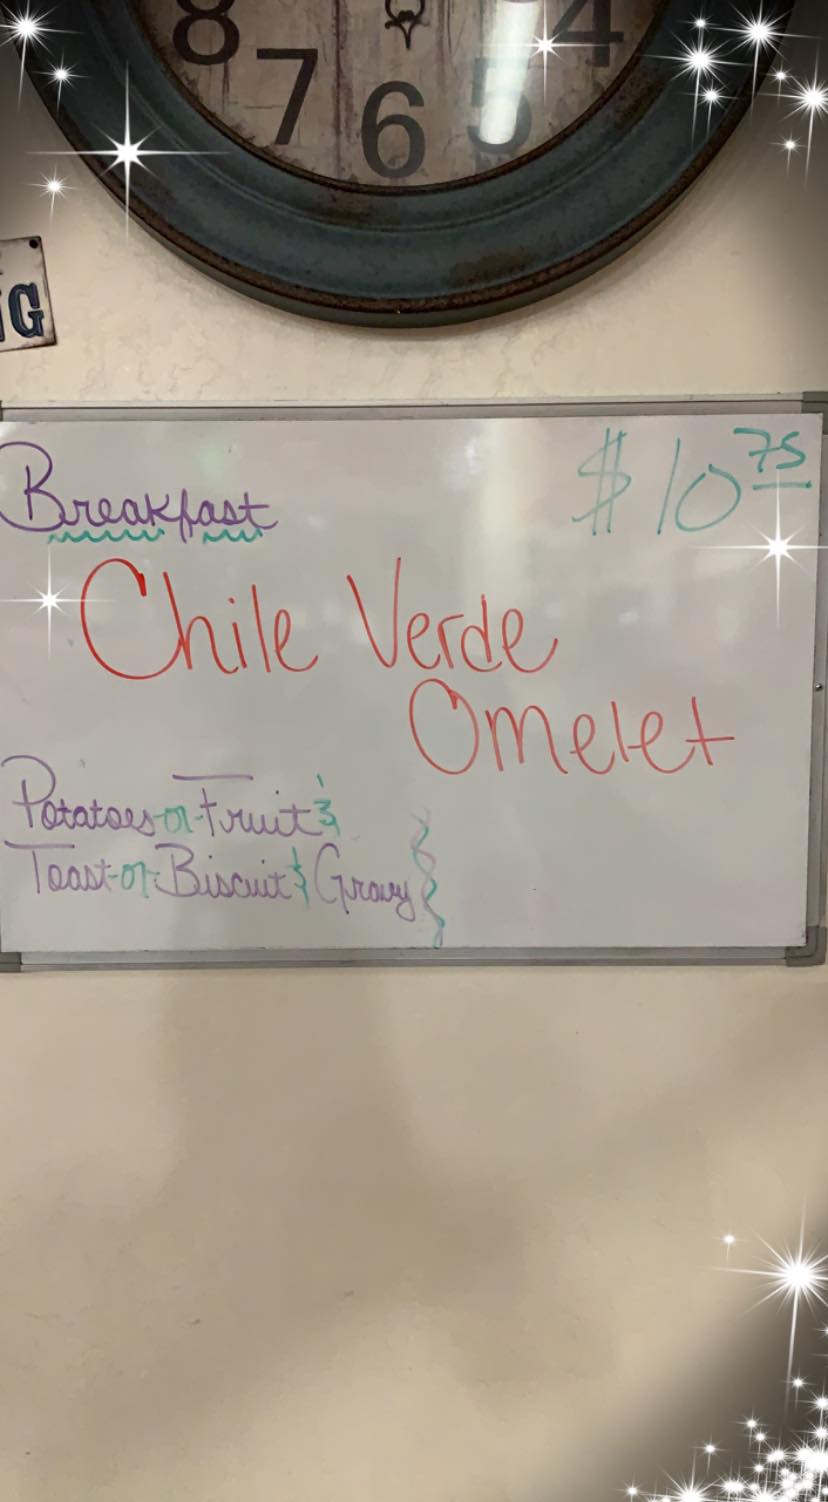 8 7 6 5 4
G
Breakfast $10 75
Chile Verde
Omelet
Potatoes or Fruit &
Toast or Biscuit & Gravy